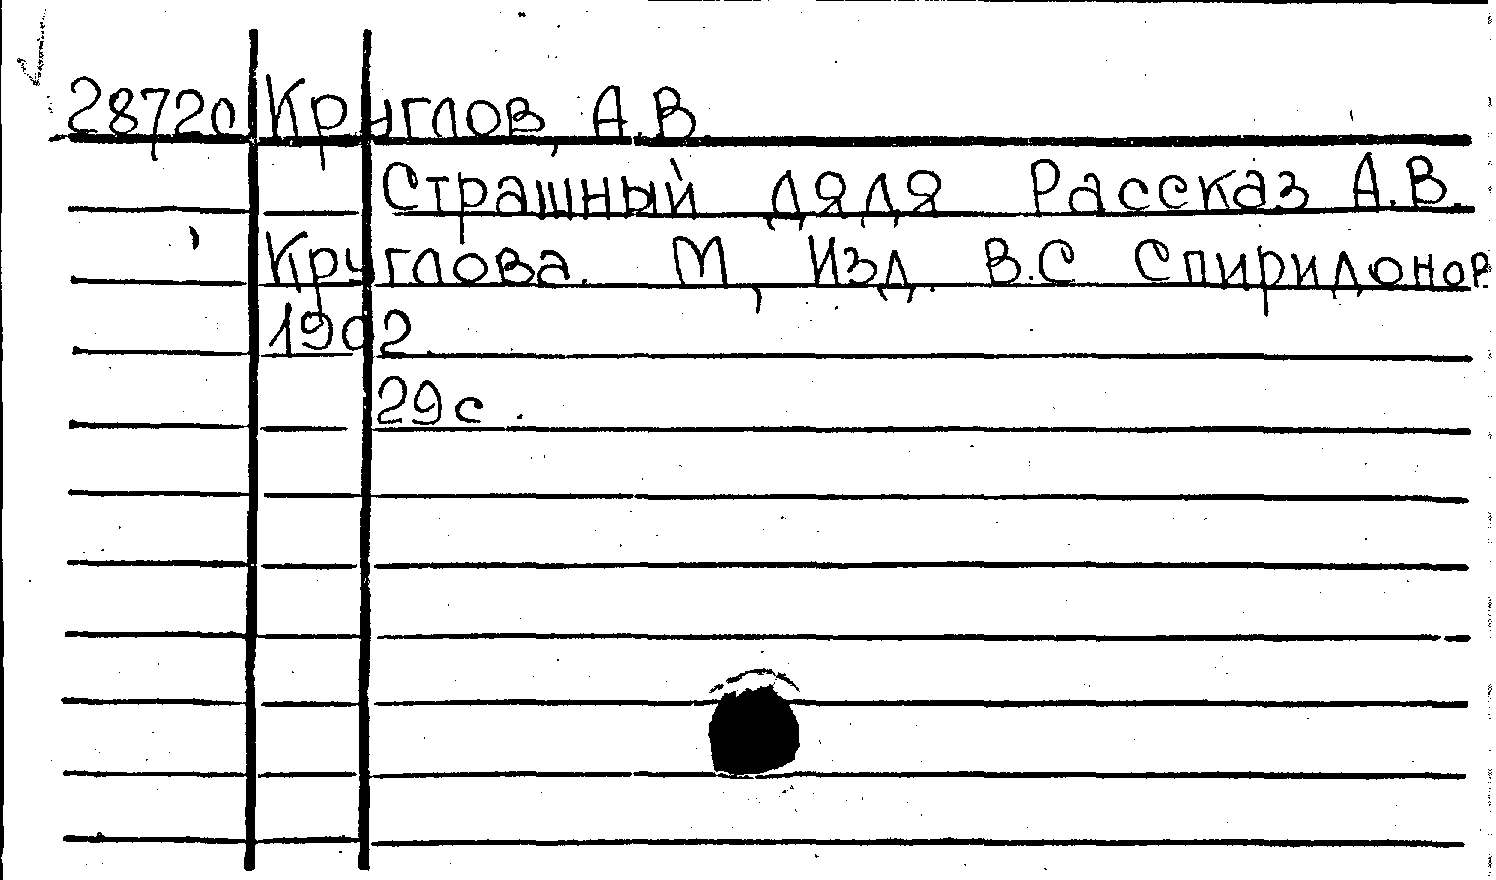 28720 Круглов, А.В.
Страшный дядя Рассказ А.В.
Круглова. М, Изд. В.С Спиридонов
1902.
29с.